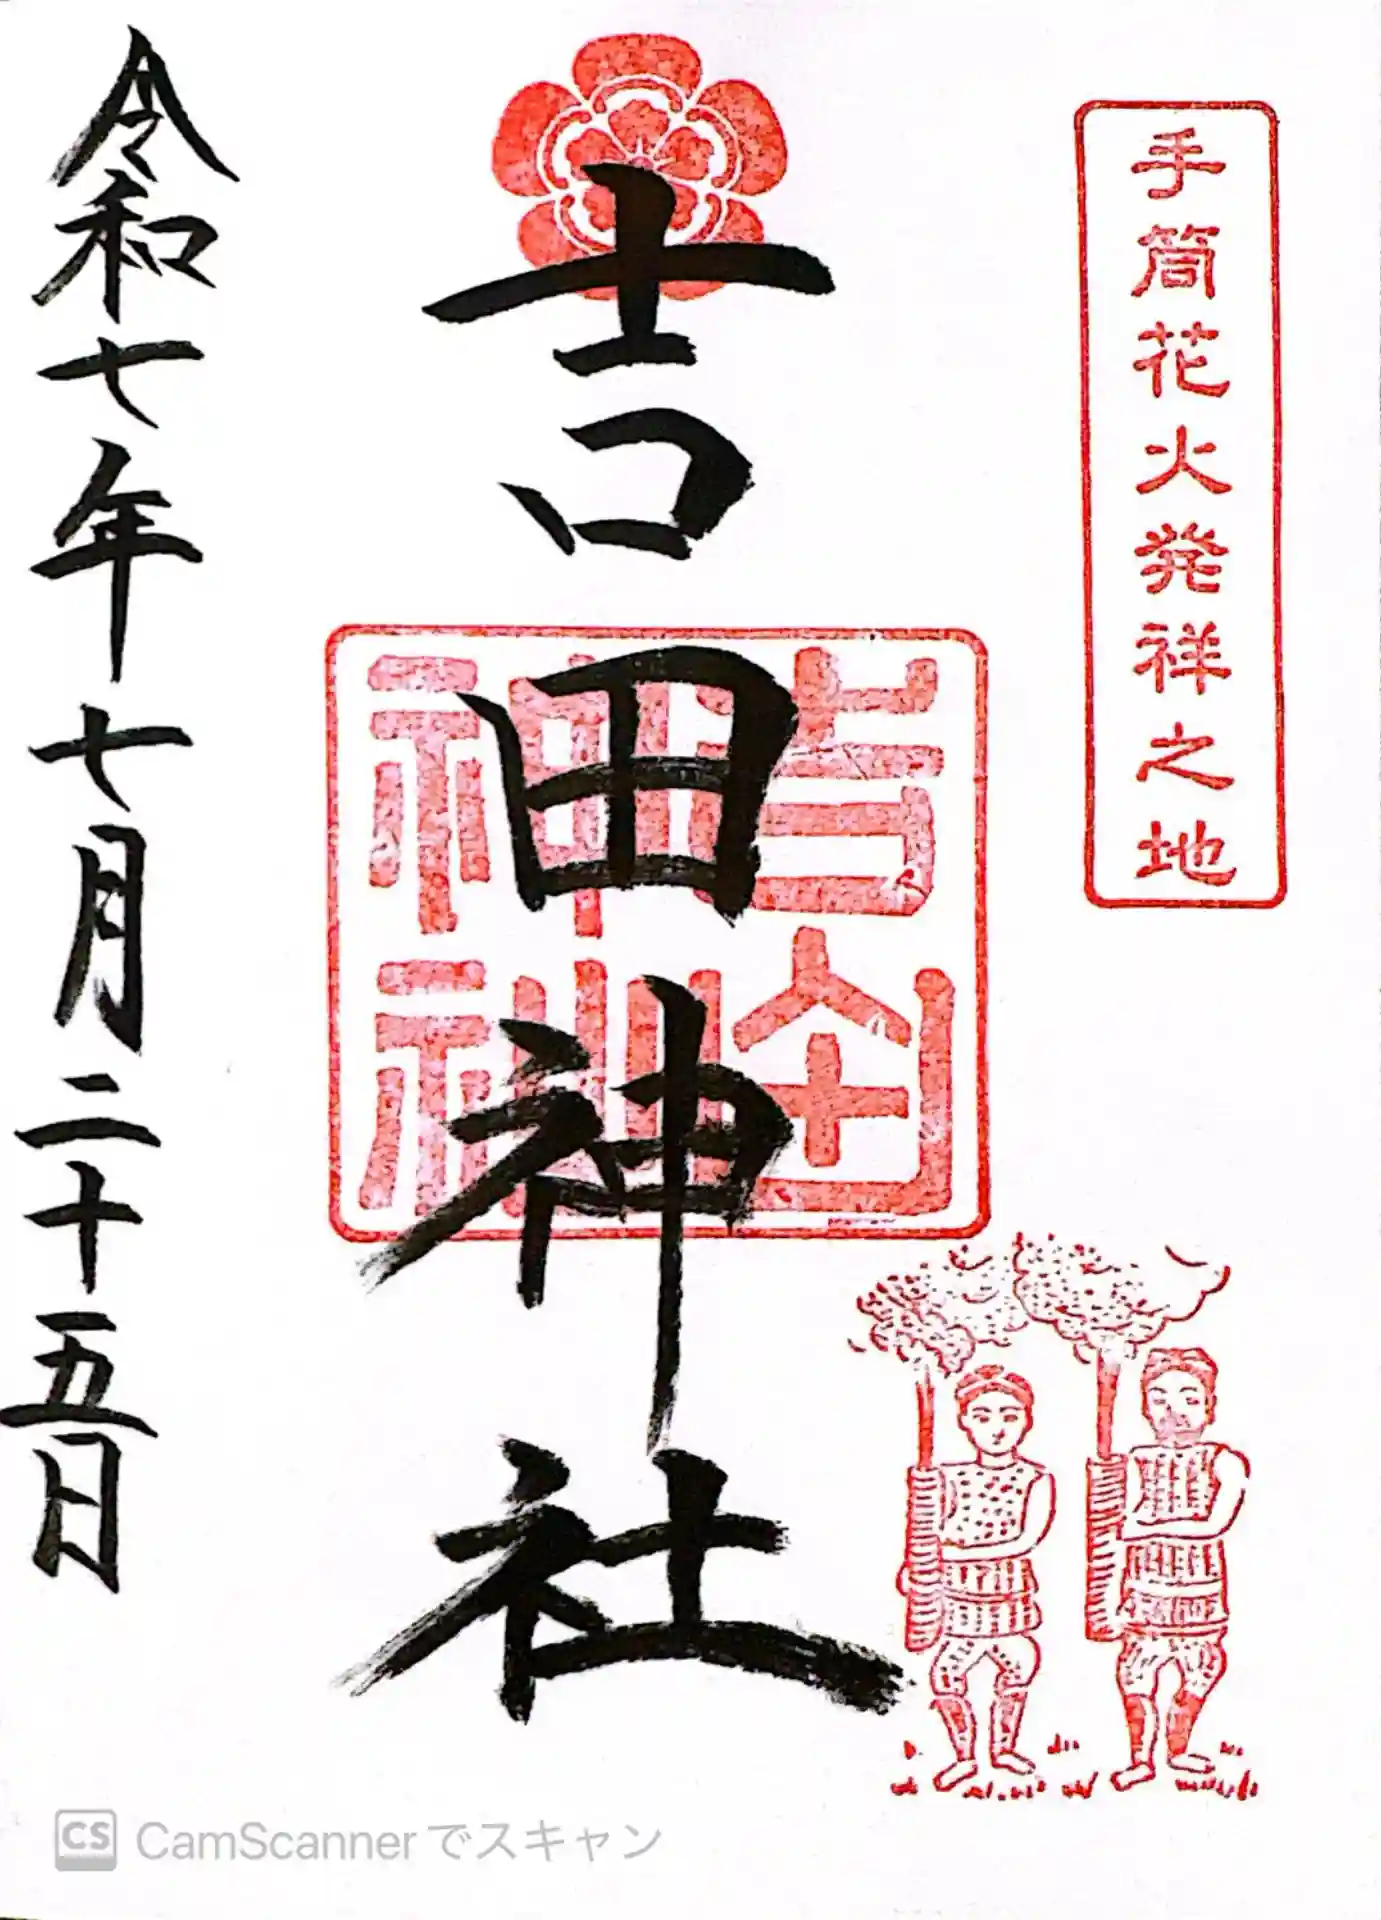 手筒花火発祥之地
吉田神社
吉田
神社
令和七年七月二十五日
CS CamScannerでスキャン